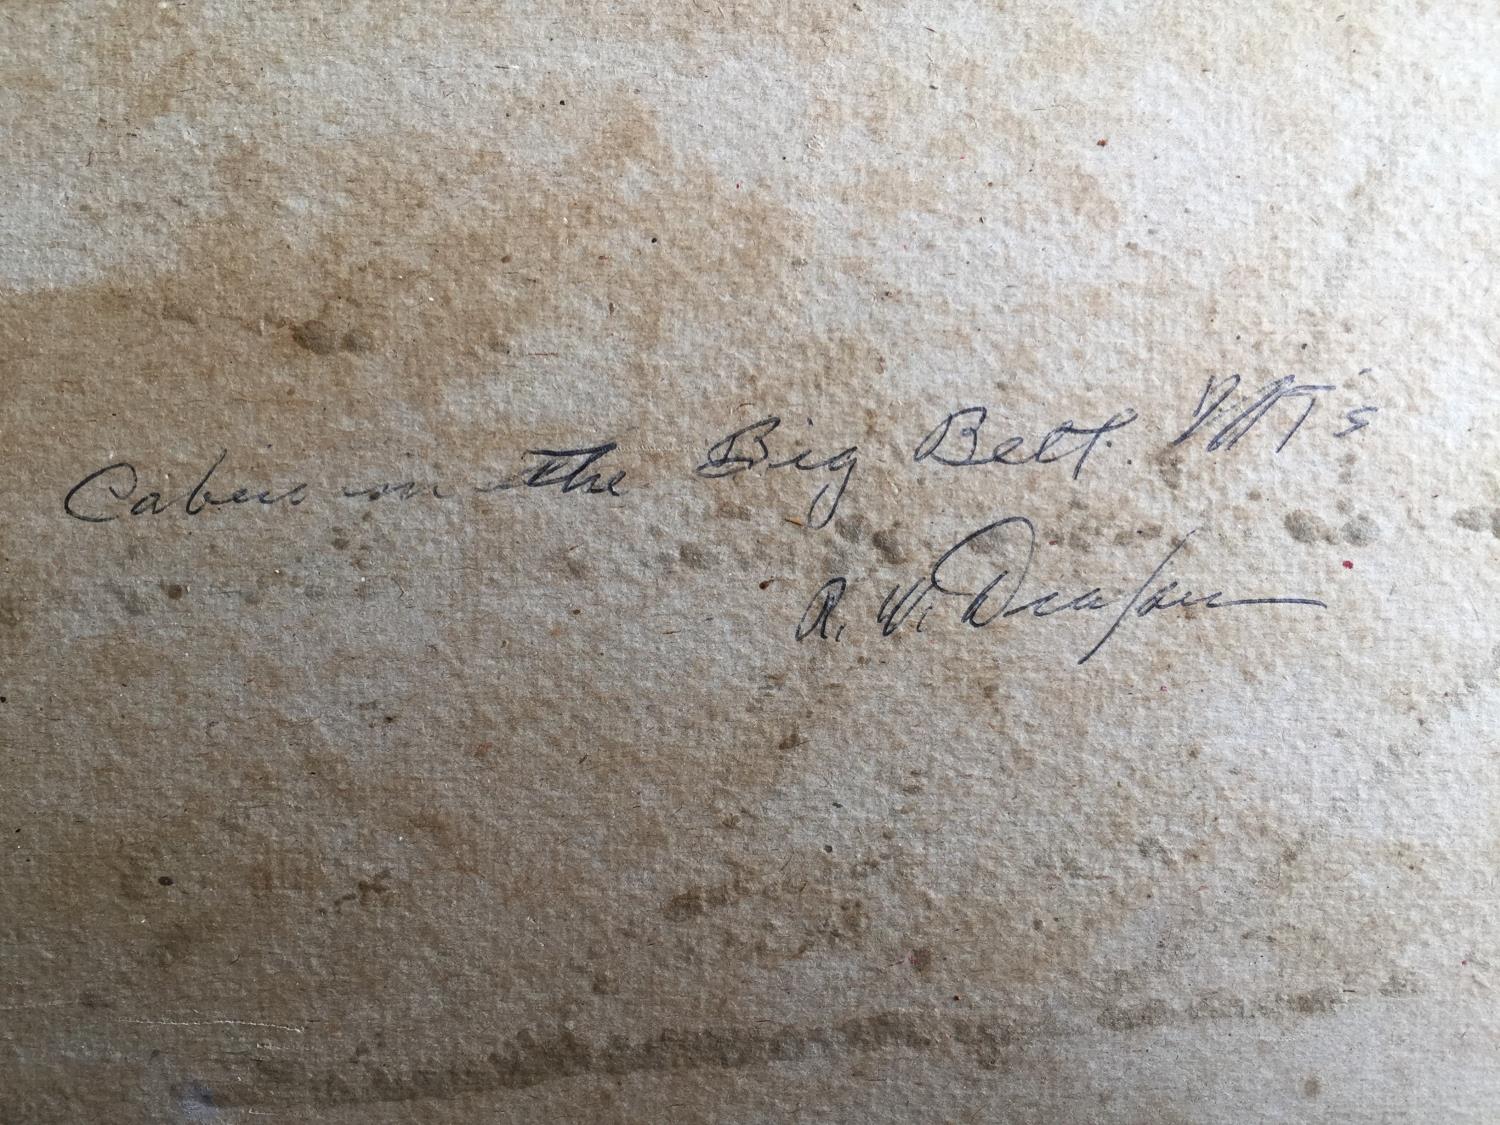 Cabin on the Big Belt. Mt's
R. W. Draper